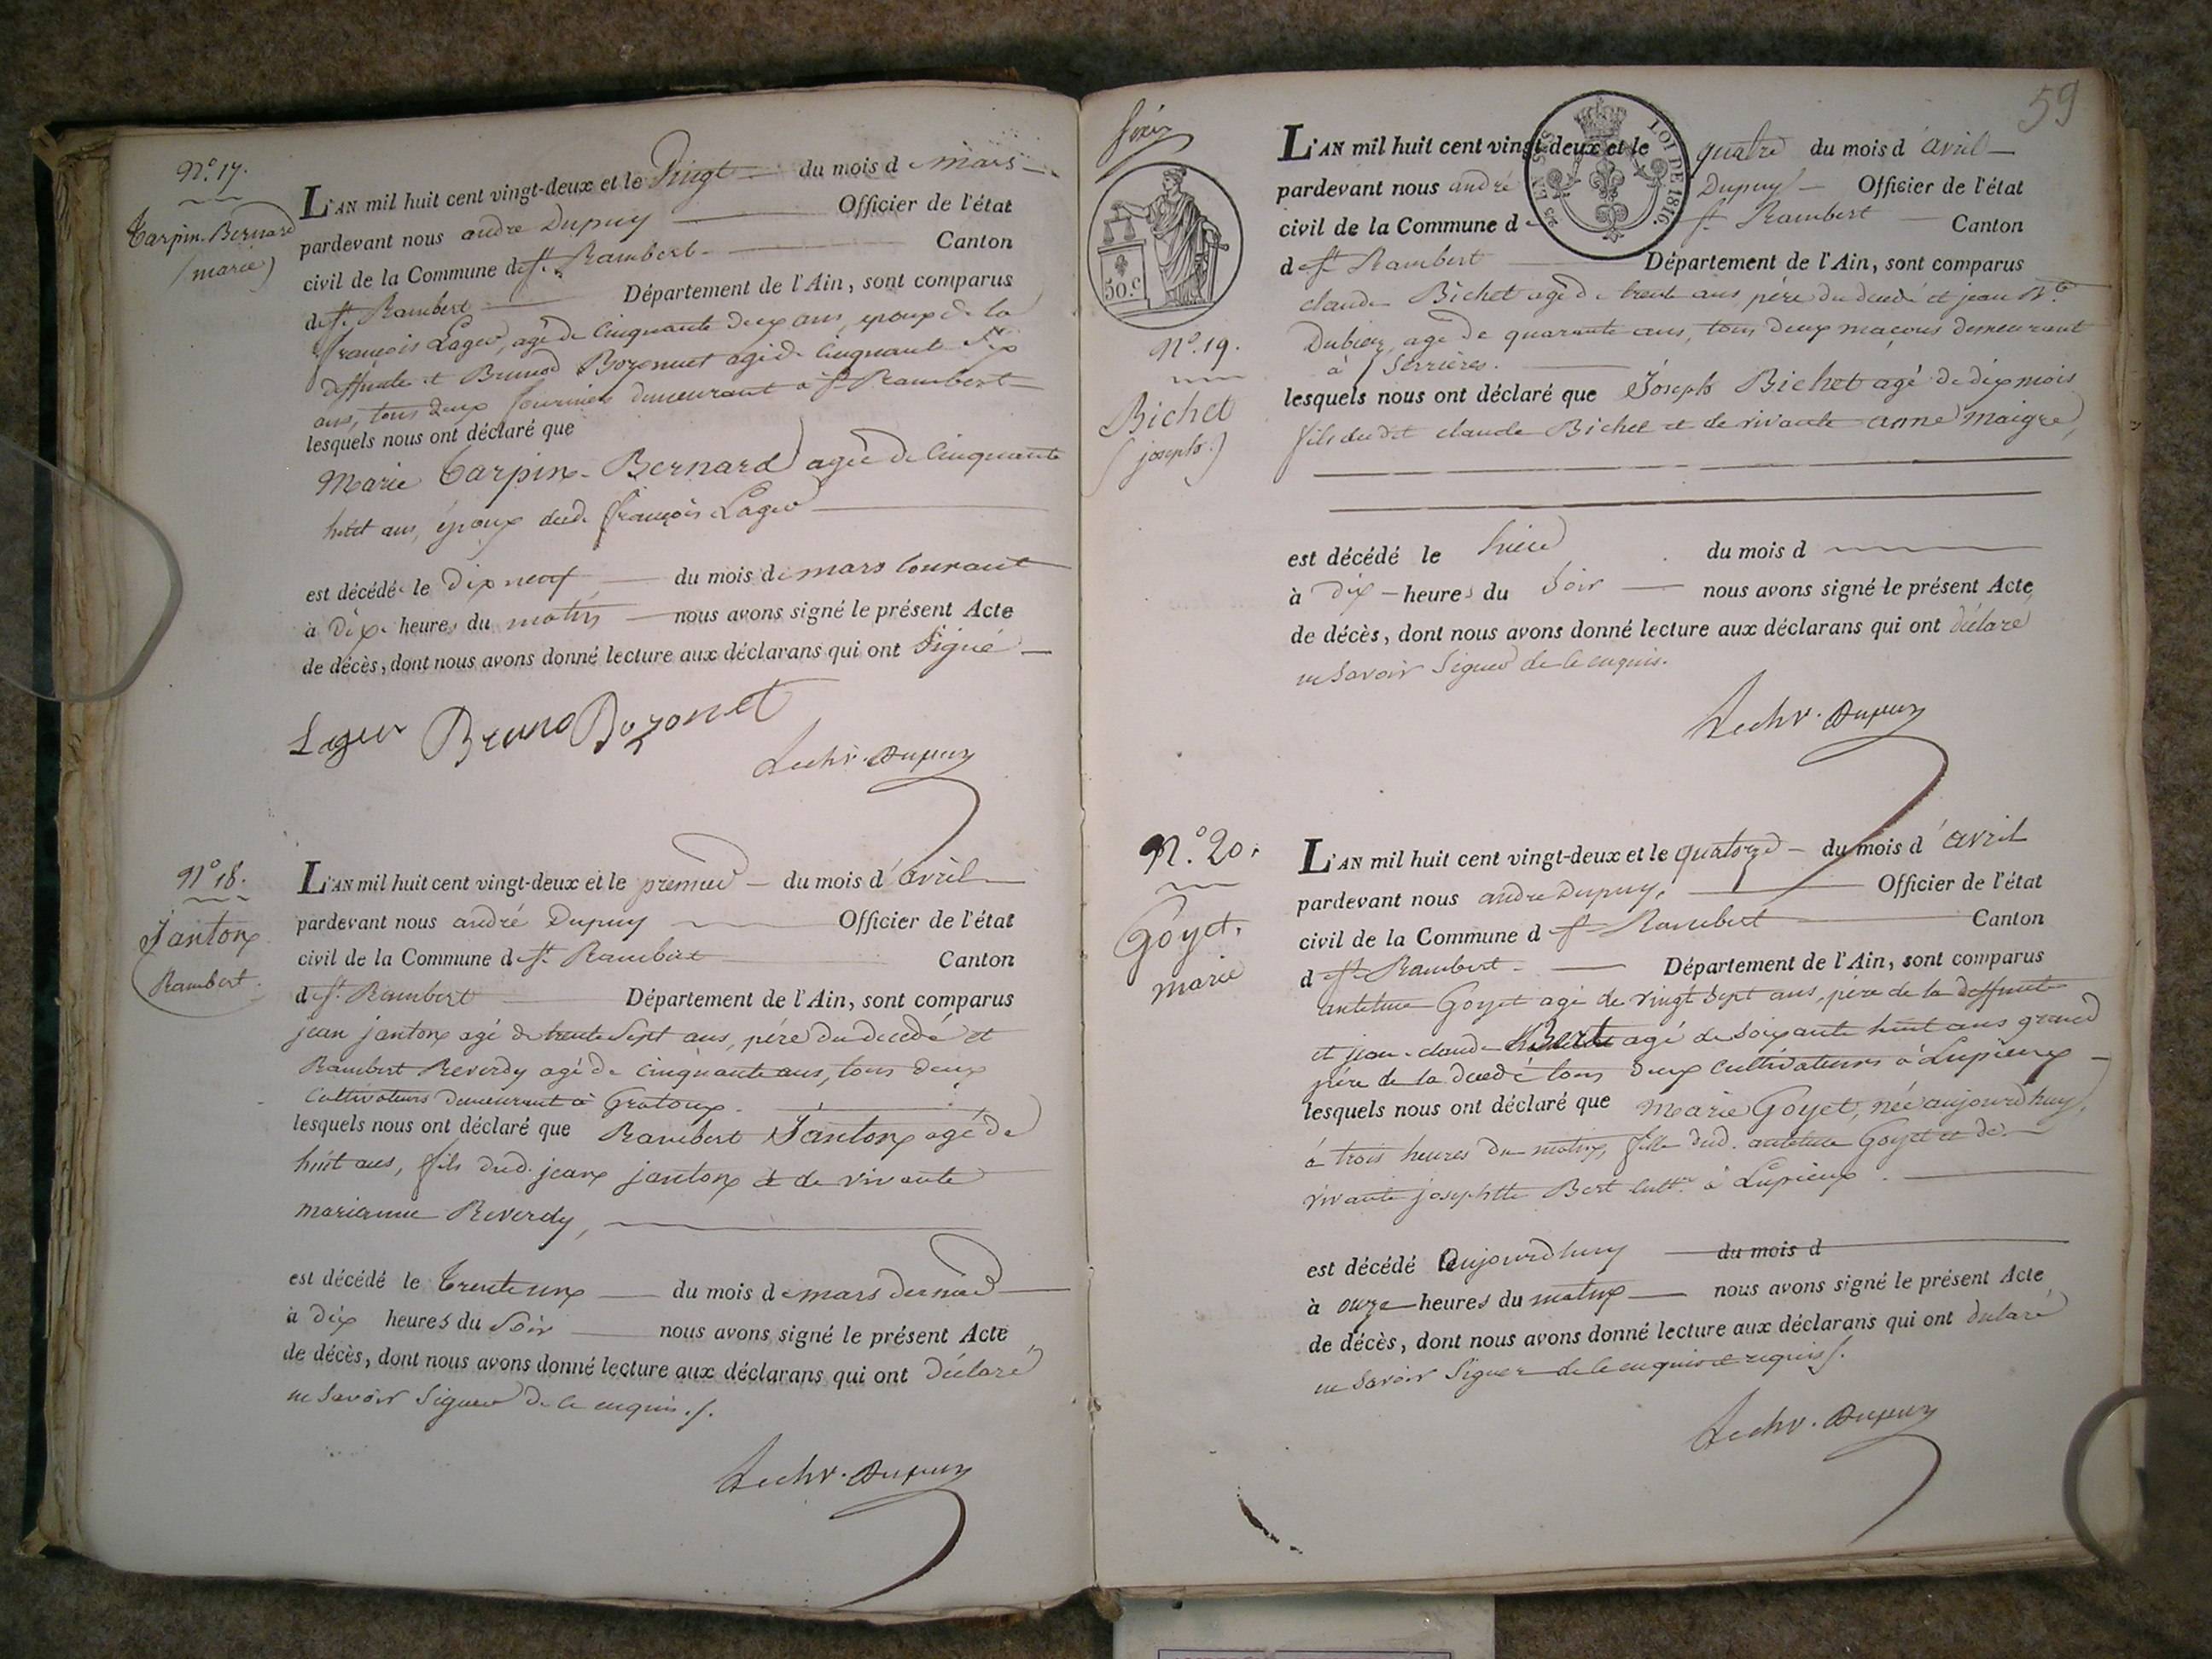 N.° 17.
Carpin-Bernard
(marie)
L'AN mil huit cent vingt-deux et le Vingt du mois de mars
pardevant nous andré Dupuy Officier de l'état
civil de la Commune de St. Rambert Canton
de St. Rambert Département de l'Ain, sont comparus
françois Lager, agé de Cinquante deux ans, epoux de la
deffunte et Brunod Bozonnet agé de Cinquante Six
ans, tous deux demeurant à St. Rambert
lesquels nous ont déclaré que
Marie Carpin-Bernard agée de Cinquante
huit ans, époux dud. françois Lager
est décédé le Dix neuf du mois de mars Courant
à Dix heures du matin nous avons signé le présent Acte
de décès, dont nous avons donné lecture aux déclarans qui ont Signé
Lager Bruno Bozonet
Dupuy
N.° 18.
Janton
Rambert
L'AN mil huit cent vingt-deux et le premier du mois d'avril
pardevant nous andré Dupuy Officier de l'état
civil de la Commune de St. Rambert Canton
de St. Rambert Département de l'Ain, sont comparus
jean janton agé de trente Sept ans, pére du décédé et
Rambert Reverdy agé de Cinquante ans, tous deux
Cultivateurs demeurant à Gratoux.
lesquels nous ont déclaré que Rambert Janton agé de
huit ans, fils dud. jean janton et de vivante
marianne Reverdy,
est décédé le Trente un du mois de mars dernier
à dix heures du Soir nous avons signé le présent Acte
de décès, dont nous avons donné lecture aux déclarans qui ont déclaré
ne Savoir Signer de ce enquis./.
Dupuy
59
50.c
LOI DE 1816.
N.° 19.
Bichet
(joseph.)
L'AN mil huit cent vingt-deux et le quatre du mois d'avril
pardevant nous andré Dupuy Officier de l'état
civil de la Commune de St. Rambert Canton
de St. Rambert Département de l'Ain, sont comparus
claude Bichet agé de trente ans pére du décédé et jean Bte
Dubiez, agé de quarante ans, tous deux maçons demeurant
à Serrières.
lesquels nous ont déclaré que Joseph Bichet agé de dix mois
fils du dit claude Bichet et de vivante anne Maigre,
est décédé le hier du mois d
à Dix heures du Soir nous avons signé le présent Acte
de décès, dont nous avons donné lecture aux déclarans qui ont déclaré
ne Savoir Signer de ce enquis.
Dupuy
N.° 20.
Goyet,
marie
L'AN mil huit cent vingt-deux et le quatorze du mois d'avril
pardevant nous andré Dupuy, Officier de l'état
civil de la Commune d St Rambert Canton
d St. Rambert Département de l'Ain, sont comparus
antelme Goyet agé de vingt Sept ans, pére de la deffunte
et jean-claude Bert agé de Soixante huit ans grand
pére de la décédé tous deux Cultivateurs à Lupieux
lesquels nous ont déclaré que Marie Goyet, née aujourdhuy,
à trois heures du matin, fille dud. antelme Goyet et de
vivante josephtte Bert cultr. à Lupieux.
est décédé aujourdhuy du mois d
à onze heures du matin nous avons signé le présent Acte
de décès, dont nous avons donné lecture aux déclarans qui ont declaré
ne Savoir Signer de ce enquis et requis/.
Dupuy